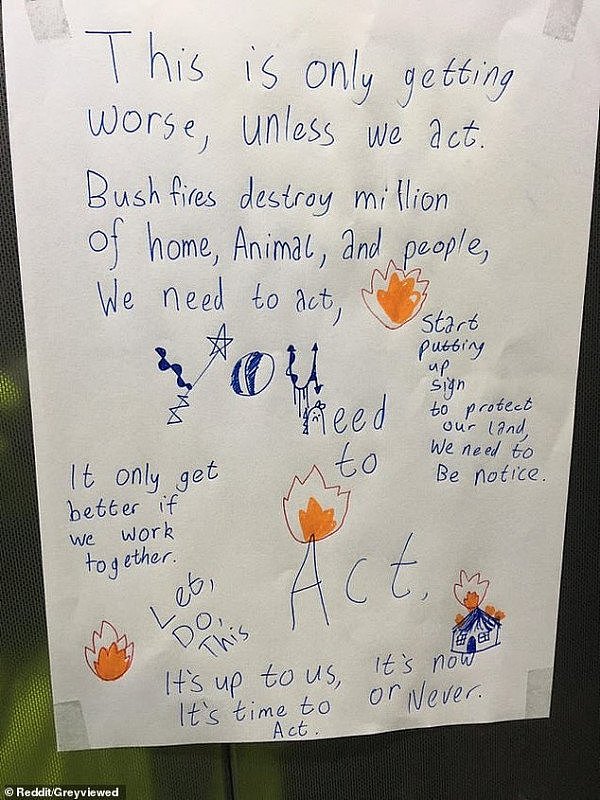 This is only getting
worse, unless we act.
Bushfires destroy million
of home, Animal, and people,
We need to act,
Start
putting
up
sign
to protect
our land,
We need to
Be notice.
You
need
to
Act.
It only get
better if
we work
together.
Let,
Do,
This
It's up to us,
It's time to
Act.
It's now
or Never.
© Reddit/Greyviewed